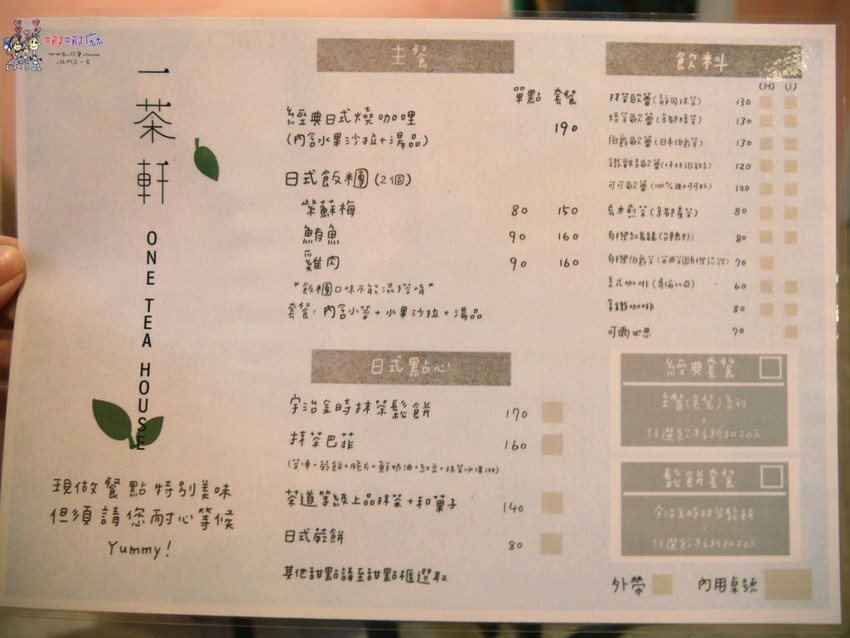 一茶軒
ONE TEA HOUSE
現做餐點特別美味
但須請您耐心等候
Yummy!
主餐
單點 套餐
經典日式燒咖哩 190
(內含水果沙拉+湯品)
日式飯糰(2個)
紫蘇梅 80 150
鮪魚 90 160
雞肉 90 160
"飯糰口味不能混搭唷"
套餐:內含小菜+水果沙拉+湯品
日式點心
宇治金時抹茶鬆餅 170
抹茶巴菲 160
茶道等級上品抹茶+和菓子 140
日式煎餅 80
其他甜點請至甜點櫃選取
飲料
(H) (I)
抹茶歐蕾(靜岡抹茶) 130
焙茶歐蕾(京都焙茶) 130
伯爵歐蕾(日本伯爵茶) 130
120
可可歐蕾 120
玄米煎茶 80
80
有機伯爵茶 70
美式咖啡 60
80
可爾必思 70
經典套餐
主餐(套餐)系列
+
任選飲料折扣20元
鬆餅套餐
宇治金時抹茶鬆餅
+
任選飲料折扣20元
外帶 內用桌號